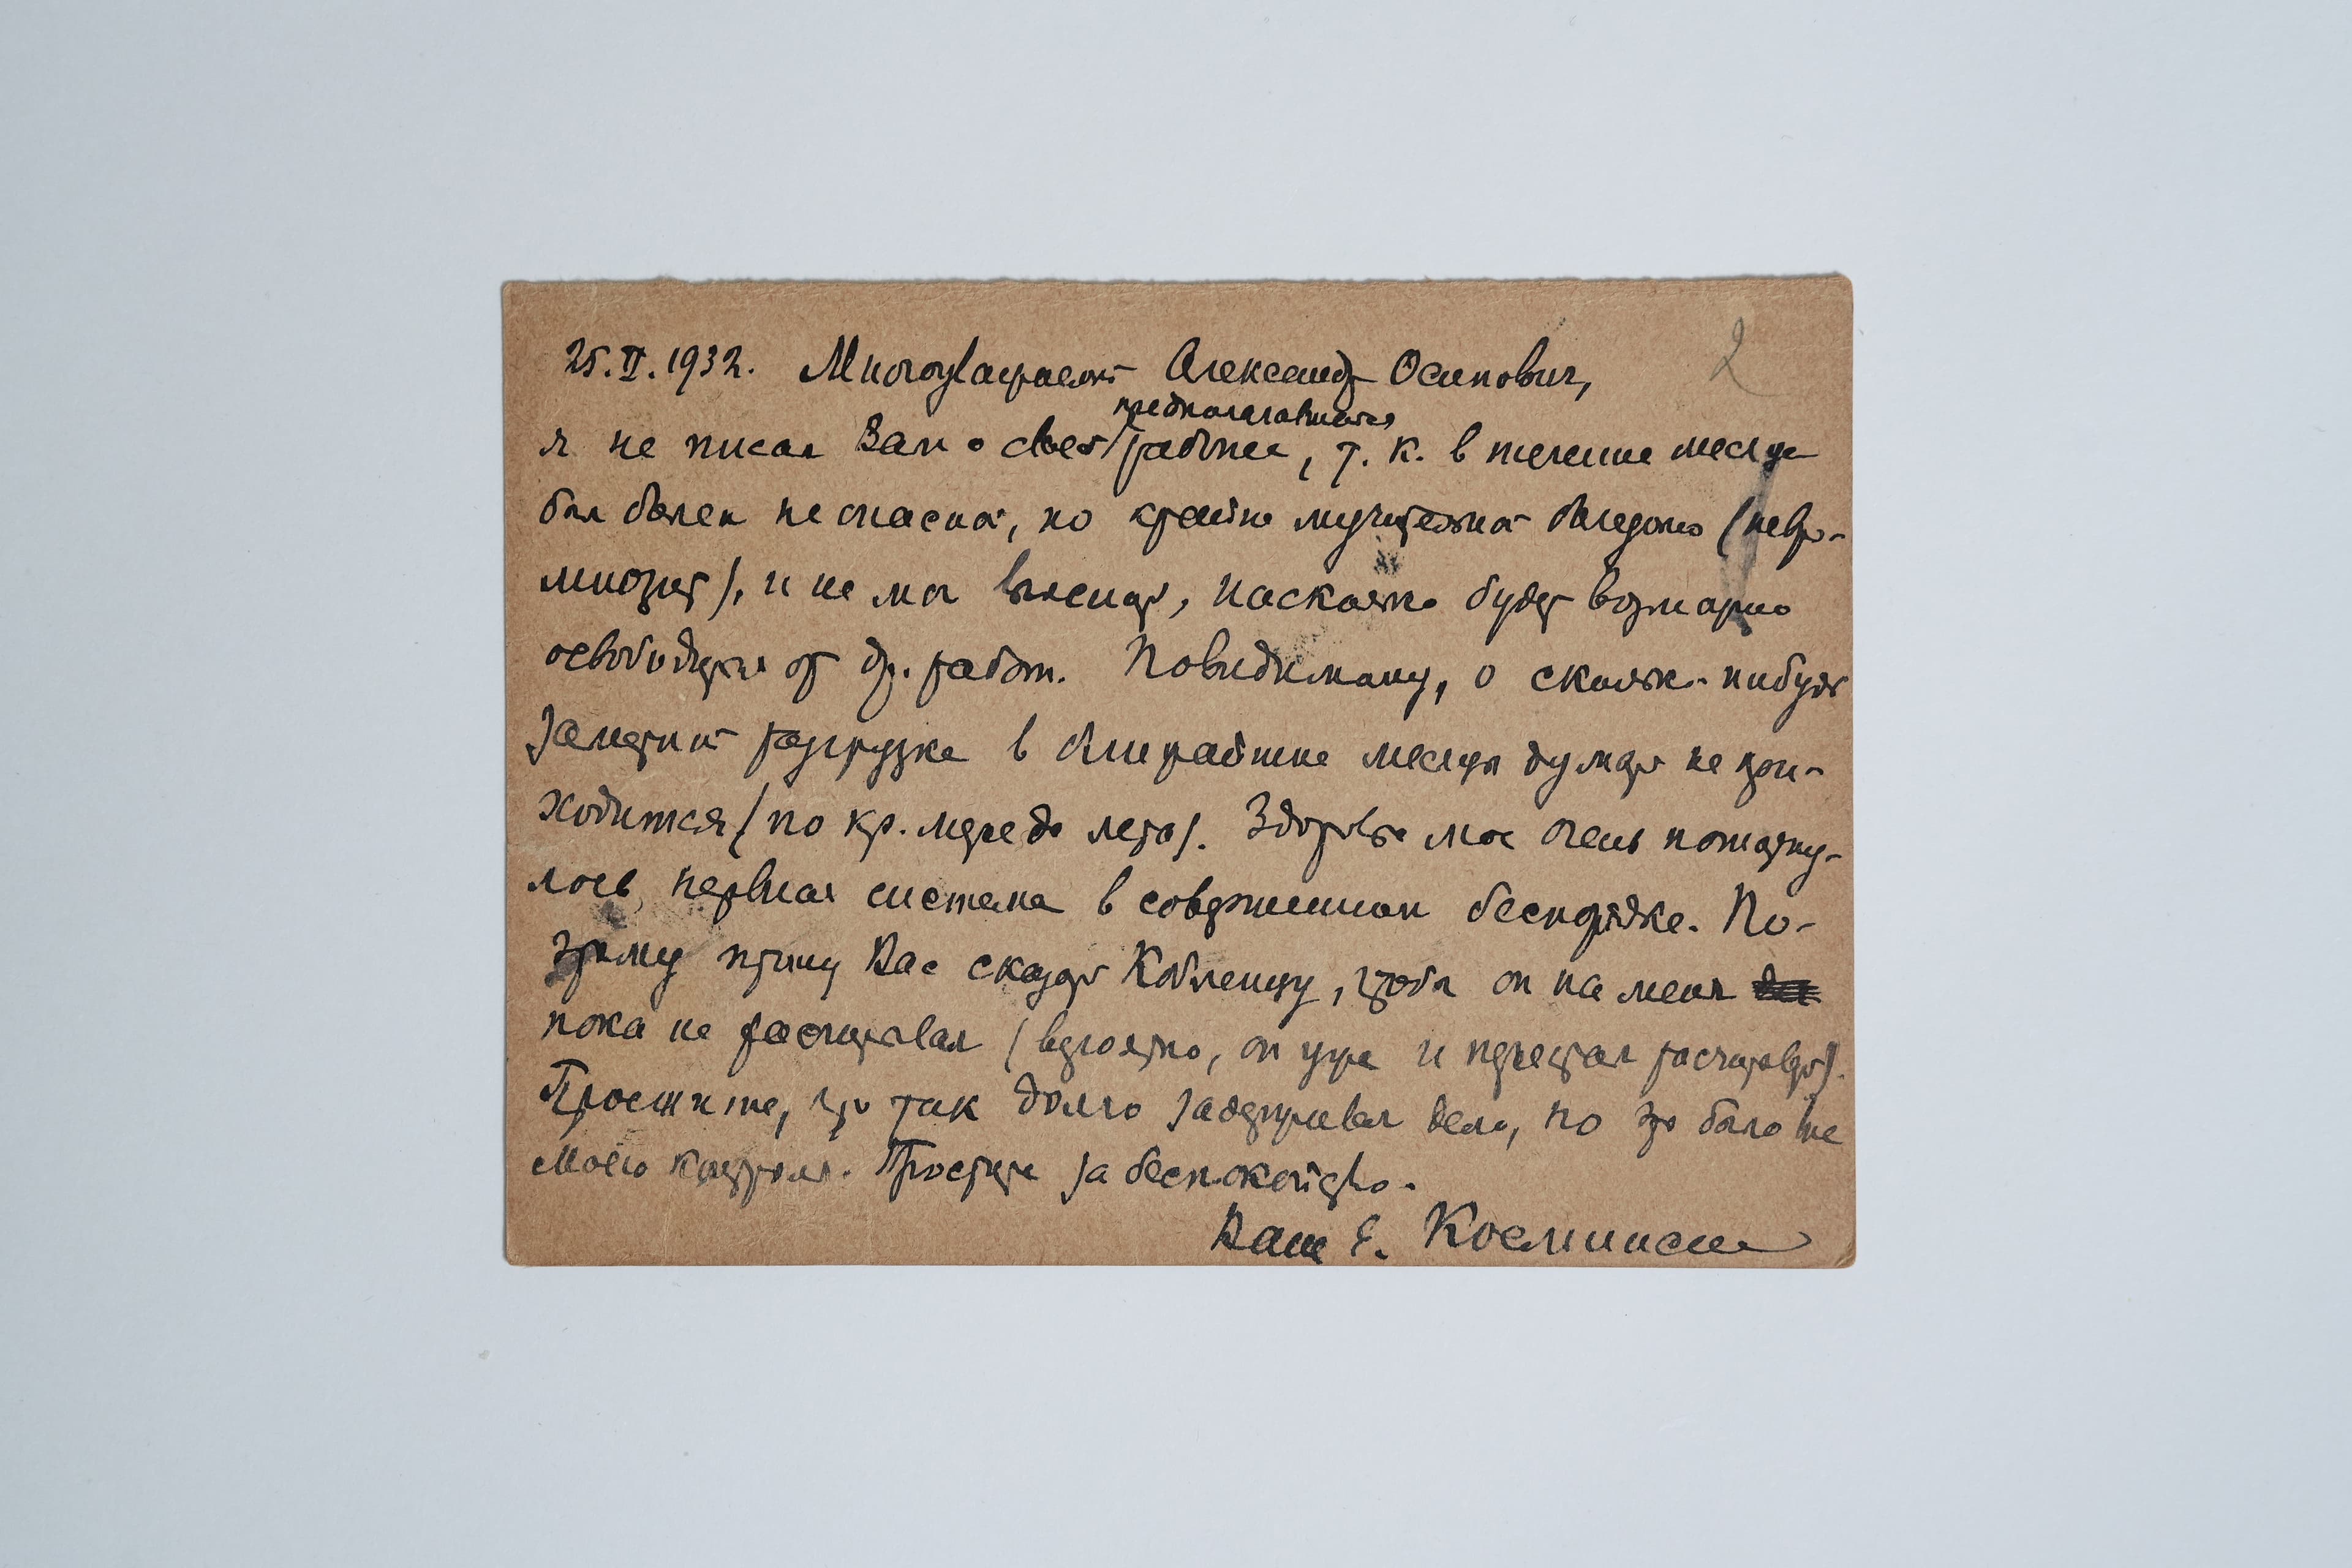 2
25.II.1932. Многоуважаемый Александр Осипович,
предполагавшейся
я не писал Вам о своей работе, т. к. в течение месяца
был болен не опасной, но крайне мучительной болезнью (невро-
миозит), и не мог выяснить, насколько будет возможно
освободиться от др. работ. Повидимому, о сколько-нибудь
заметной разгрузке в ближайшие месяцы думать не при-
ходится (по кр. мере до лета). Здоровье мое очень пошатну-
лось, нервная система в совершенном беспорядке. По-
этому прошу Вас сказать Кобленцу, чтобы он на меня
пока не рассчитывал (вероятно, он уже и перестал рассчитывать).
Простите, что так долго задерживал дело, но это было вне
моего контроля. Простите за беспокойство.
Ваш Е. Косминский